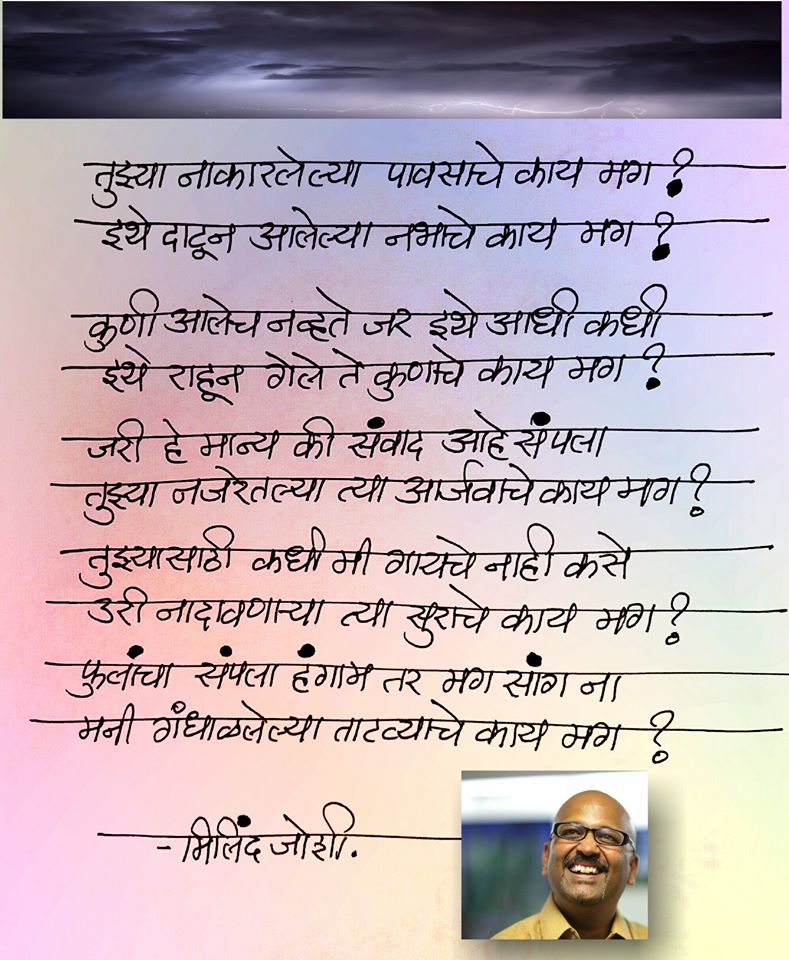 तुझ्या नाकारलेल्या पावसाचे काय मग ?
इथे दाटून आलेल्या नभाचे काय मग ?
कुणी आलेच नव्हते जर इथे आधी कधी
इथे राहून गेले ते कुणाचे काय मग ?
जरी हे मान्य की संवाद आहे संपला
तुझ्या नजरेतल्या त्या आर्जवाचे काय मग ?
तुझ्यासाठी कधी मी गायचे नाही कसे
उरी नादावणाऱ्या त्या सुराचे काय मग ?
फुलांचा संपला हंगाम तर मग सांग ना
मनी गंधाळलेल्या ताटव्याचे काय मग ?
- मिलिंद जोशी.